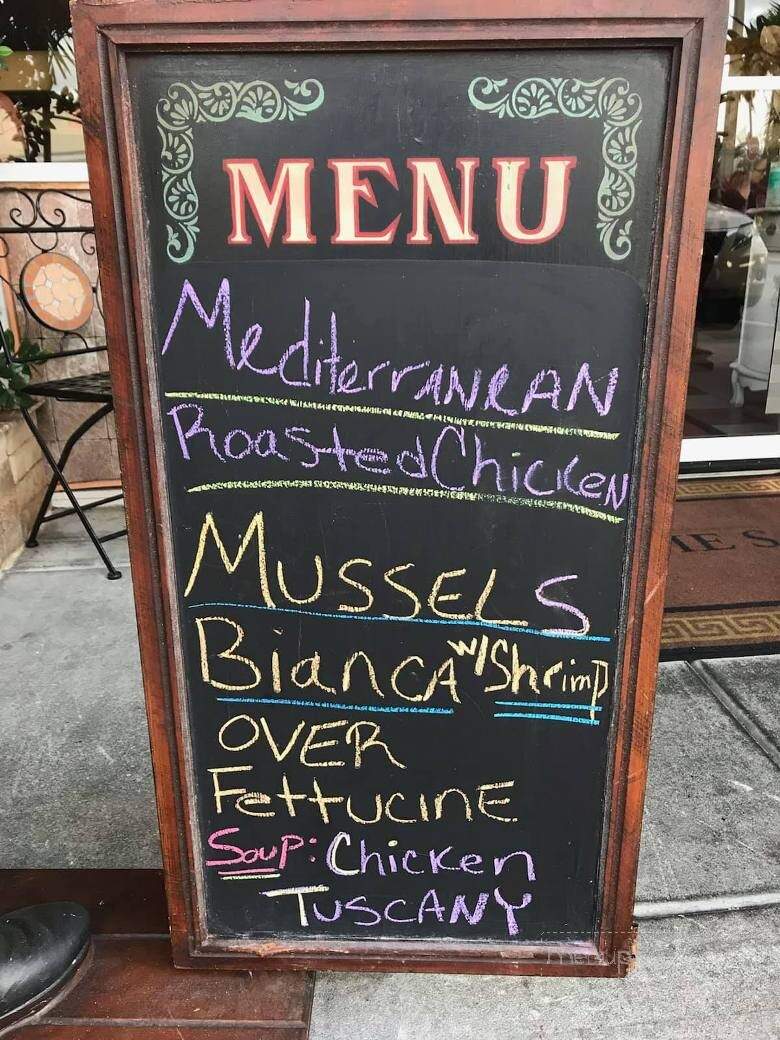 MENU
MediterrANEAN
Roasted Chicken
MUSSELS
BiancA w/ Shrimp
OVER
FettucinE
Soup: Chicken
TUSCANY